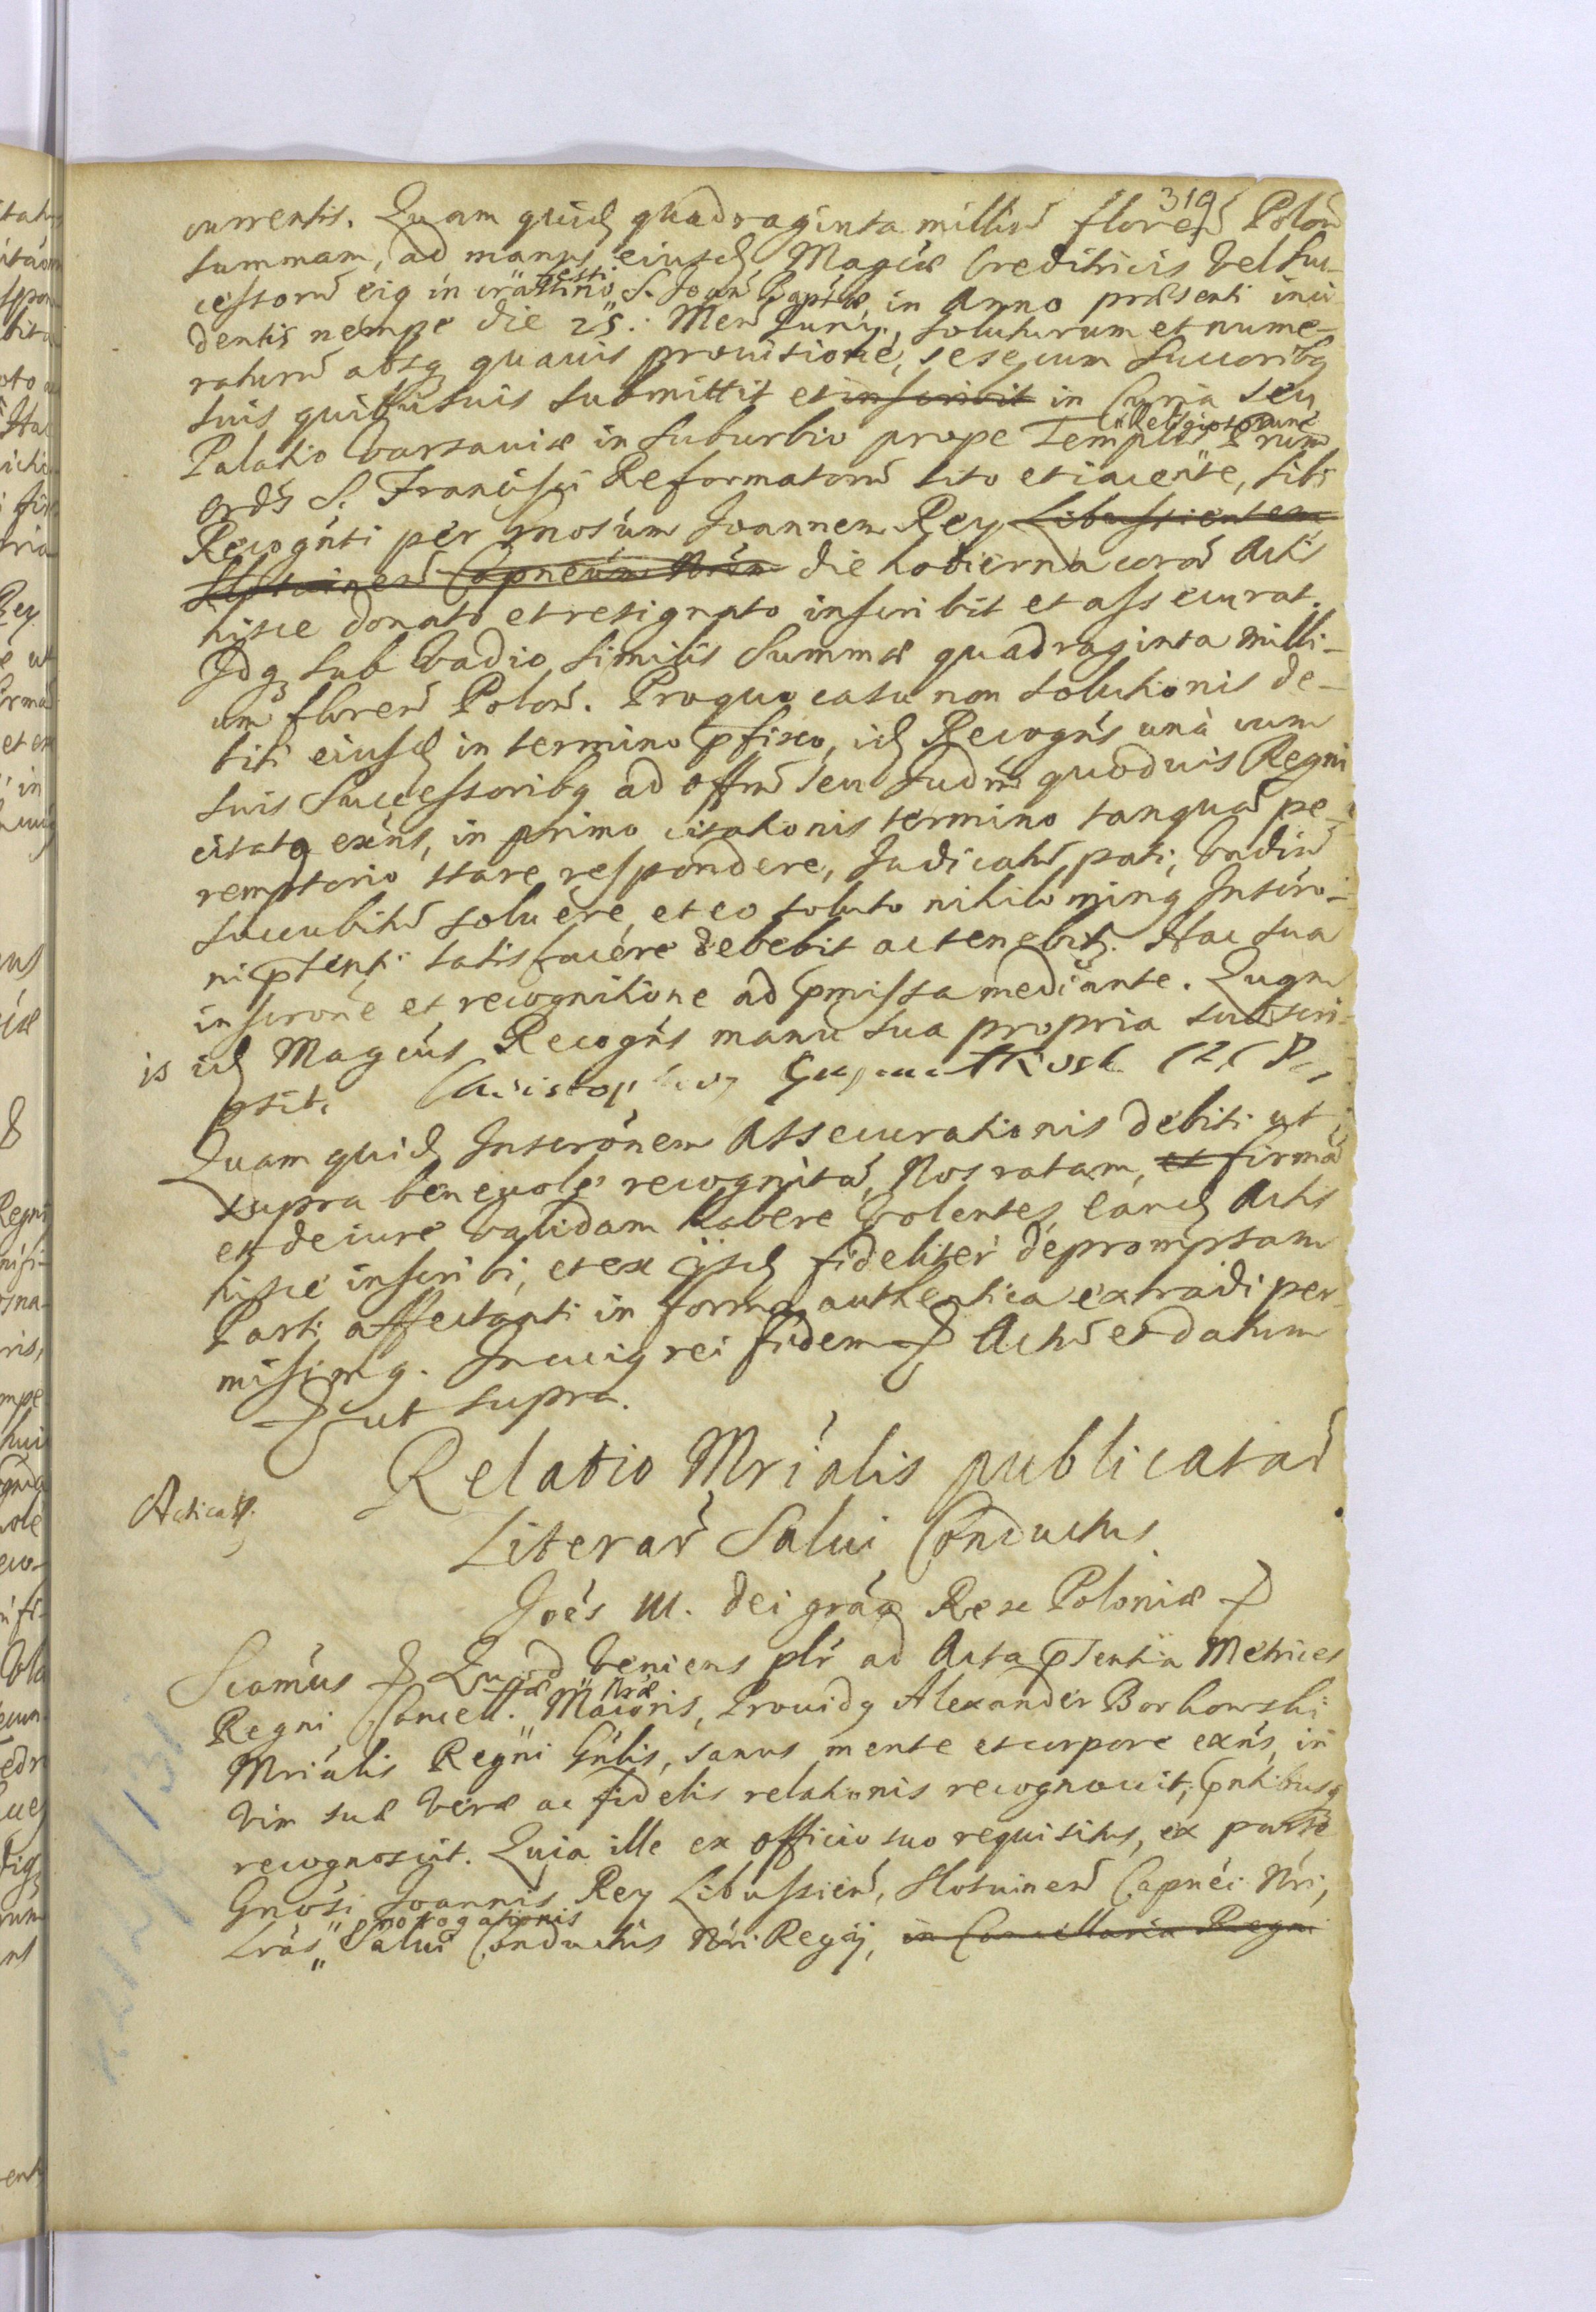 319
currentis. Quam quid quadraginta milliu floren Polon
summam, ad manus eiusd Magcæ Creditricis vel Suc-
cessoru eiq in crastino festi S. Joan Baptæ, in Anno præsenti inci
dentis nempe die 25. Men Junij, soluturum et nume-
raturu absq quauis prouisione, sese cum Succoribq
suis quibusuis submittit et inscribit in Curia seu
Palatio Varsauiæ in suburbio prope Templu Religiosorum Prum
Ordis S. Francisci Reformatoru sito et iacente, sibi
Recognti per Gnosum Joannem Rey Libussientem
Hotuinen Capneum Nrum die hodierna cora Actis
hisce donato et resignato inscribit et assecurat.
Idq sub Vadio similis Summæ quadraginta milli-
um floren Polon. Pro quo casu non solutionis de-
biti eiusd in termino pfixo, id Recogns unà cum
suis Successoribq ad offm seu Judm quoduis Regni
citatq exns, in primo citationis termino tanqua pe-
remptorio stare, respondere, Judicatu pati, Vadiu
succubitu soluere, et eo soluto nihilominq Inscro-
ni pnti satisfacere debebit ac tenebit. Hac sua
inscrone et recognitione ad pmissa mediante. Quam
is id Magcus Recogns manu sua propria subscri-
psit.
Quam quid Inscronem Assecurationis debiti ut
supra beneuole recognita, Nos ratam, et firma
et de iure validam habere volentes, eand Actis
hisce inscribi, et ex ijsd fideliter depromptam
Parti affectanti in forma authentica extradi per-
misimq. In cuiq rei fidem Actu et datum
ut supra.
Relatio Mrialis publicatar
Acticat.
Literar Salui Conductus
Joes III. Dei grãa Rex Poloniæ
Scamus Quod veniens plr ad Acta pntia Metrices
Regni Cancell. Nræ Maioris, Prouidq Alexander Borkowski
Mrialis Regni Gnlis, sanus mente et corpore exns, in
vim suæ veræ ac fidelis relationis recognouit, pntibusq
recognoscit. Quia ille ex officio suo requisitus, ex parte
Gnosi Joannis Rey Libussien, Hotuinen Capnei Nri,
Lras prorogationis Salui Conductus Nri Regij, in Cancellaria Regni